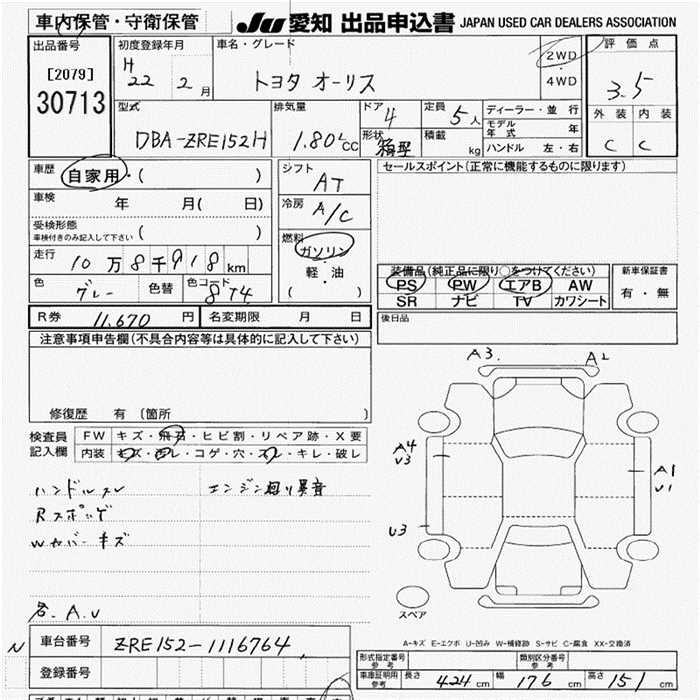 車内保管・守衛保管
JU 愛知 出品申込書 JAPAN USED CAR DEALERS ASSOCIATION
出品番号
[2079]
30713
初度登録年月
H 22 2 月
車名・グレード
トヨタ オーリス
2WD
・
4WD
評価点
3.5
外装 内装
C C
型式
DBA-ZRE152H
排気量
1.80 L CC
ドア 4
形状 箱型
定員 5人
積載 kg
ディーラー・並行
モデル年式 年
ハンドル 左・右
車歴 自家用・( )
車検 年 月( 日)
受検形態
車検付きのみ記入して下さい ( )
走行 10万8千918km
色 グレー 色替 色コード 874
シフト AT
冷房 A/C
燃料
ガソリン
軽・油
( )
セールスポイント(正常に機能するものに限ります)
装備品(純正品に限り○をつけてください)
PS PW エアB AW
SR ナビ TV カワシート
新車保証書
有・無
R券 11,670 円 名変期限 月 日
後日品
注意事項申告欄(不具合内容等は具体的に記入して下さい)
修復歴 有(箇所 )
検査員
記入欄
FW キズ・飛石・ヒビ割・リペア跡・X要
内装 キズ・ヨゴレ・コゲ・穴・スレ・キレ・破レ
ハンドルスレ エンジン廻り異音
Wカバーキズ
各.A.U
A3. A2
A4
U3
A1
U1
U3
スペア
A-キズ E-エクボ U-凹み W-補修跡 S-サビ C-腐食 XX-交換済
N 車台番号 ZRE152-1116764
登録番号
形式指定番号
参考
類別区分番号
参考
車庫証明用
参考
長さ 424 cm 幅 176 cm 高さ 151 cm